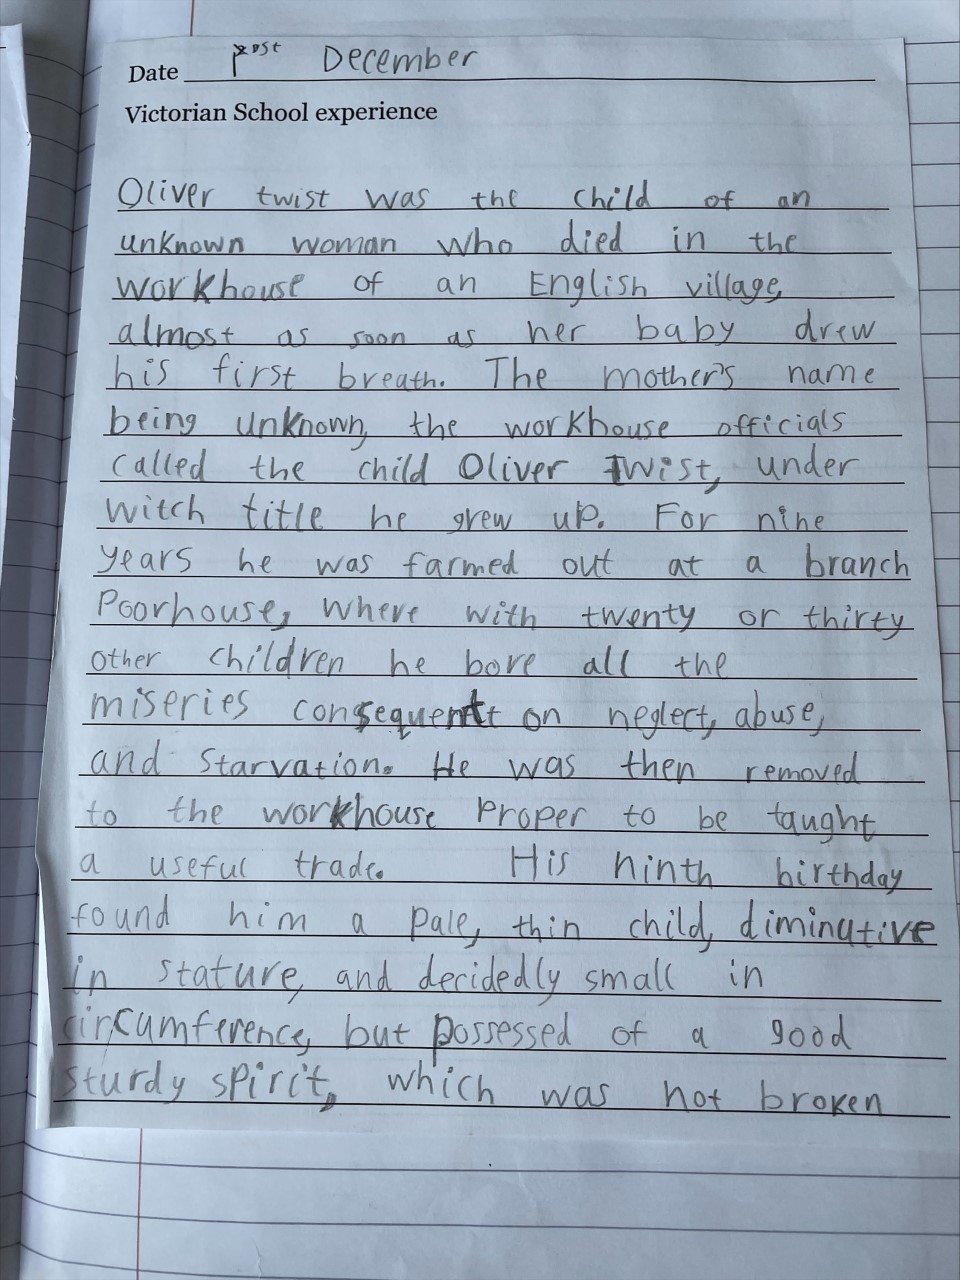 Date post December
Victorian School experience
Oliver twist was the child of an
unknown woman who died in the
workhouse of an English village,
almost as soon as her baby drew
his first breath. The mother's name
being unknown, the workhouse officials
called the child Oliver Twist, under
witch title he grew up. For nine
years he was farmed out at a branch
Poorhouse, where with twenty or thirty
other children he bore all the
miseries consequent on neglect, abuse,
and starvation. He was then removed
to the workhouse proper to be taught
a useful trade. His ninth birthday
found him a pale, thin child, diminutive
in stature, and decidedly small in
circumference, but possessed of a good
sturdy spirit, which was not broken